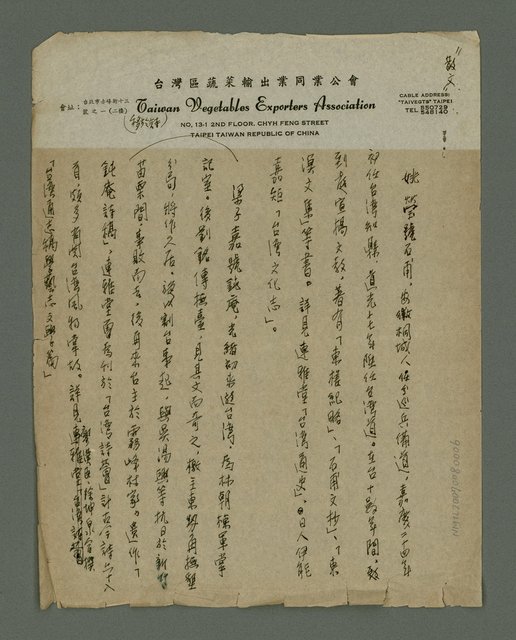 散文
台灣區蔬菜輸出業同業公會
會址:台北市赤峰街十三號之一(二樓)
Taiwan Vegetables Exporters Association
NO. 13-1 2ND FLOOR, CHYH FENG STREET
TAIPEI TAIWAN REPUBLIC OF CHINA
CABLE ADDRESS:
"TAIVEGTS" TAIPEI
TEL 550729
546140
姚瑩號石甫,安徽桐城人,任全巡兵備道,嘉慶二十四年
初任台灣知縣,道光十七年陞任台灣道。在台十數年間,致
到處宣揚文教,著有「東槎紀略」、「石甫文抄」、「東
溟文集」等書。詳見連雅堂「台灣通史」,日人伊能
嘉矩「台灣文化志」。
梁子嘉號鈍庵,光緒初来遊台灣,居林朝棟軍掌
記室。後劉銘傳撫臺,見其文而奇之,檄主東勢角撫墾
分局,將作久居,
割台事起,與吳湯興等抗日於新竹
苗栗間,事敗而去。後再來台主於霧峰林家。遺作「
鈍庵詩稿」,連雅堂曾為刊於「台灣詩薈」計古今詩六十八
首頗多有関台湾風物軍政。詳見連雅堂「台湾詩薈」
「台湾通志稿學藝志文學篇」
NMTL20090090006